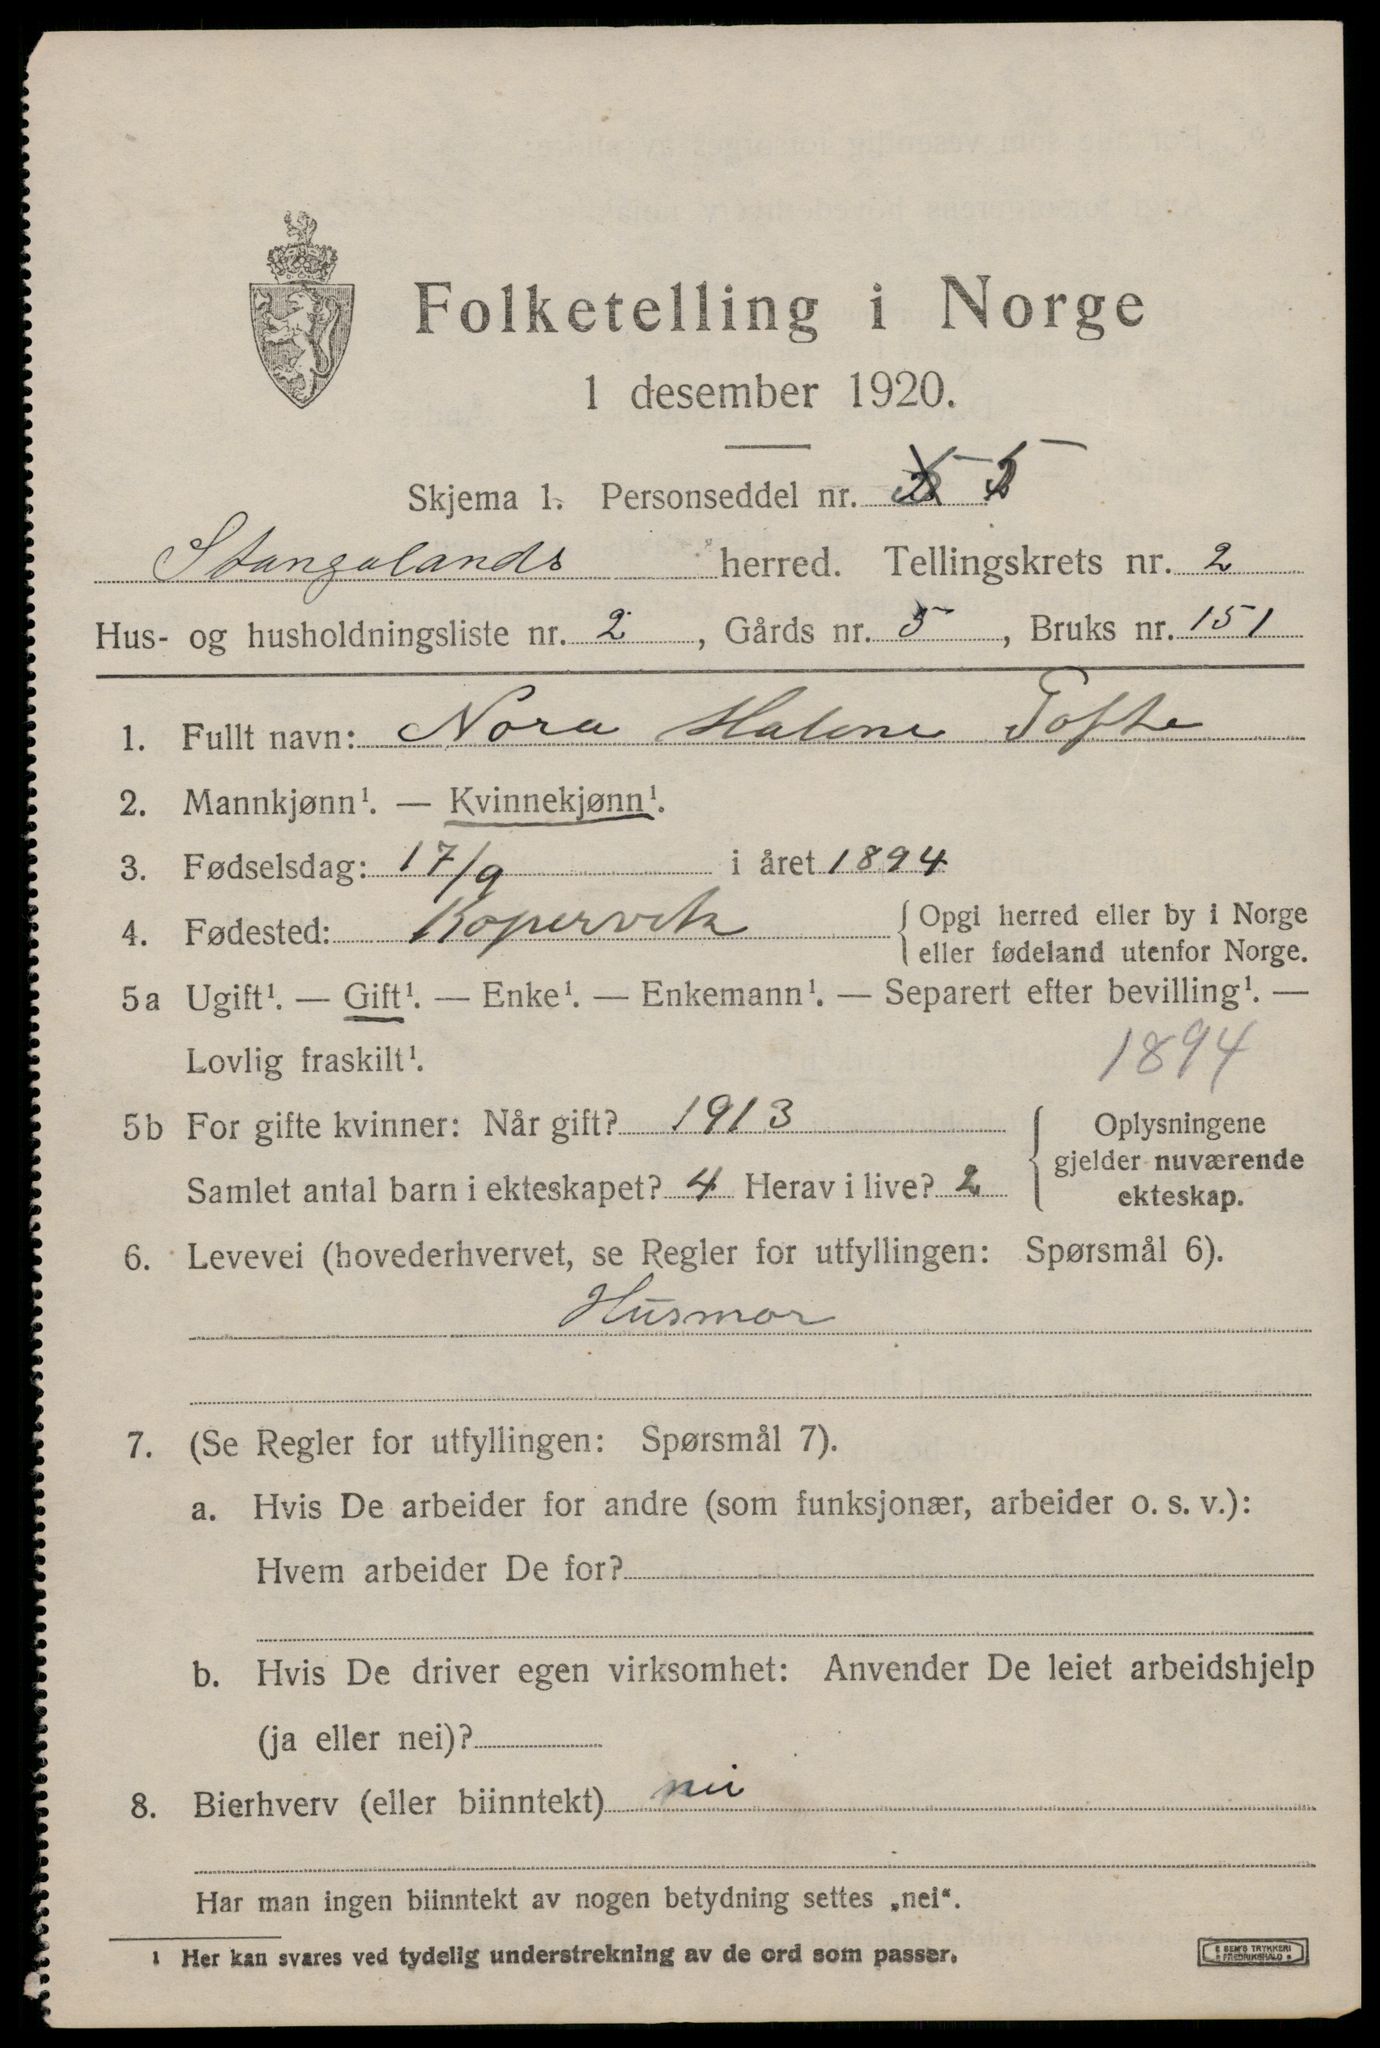 Folketelling i Norge
1 desember 1920.
Skjema 1. Personseddel nr. 5
Stangalands herred. Tellingskrets nr. 2
Hus- og husholdningsliste nr. 2, Gårds nr. 5, Bruks nr. 151
1. Fullt navn: Nora Halene Tofte
2. Mannkjønn¹. — Kvinnekjønn¹.
3. Fødselsdag: 17/9 i året 1894
4. Fødested: Kopervik { Opgi herred eller by i Norge
eller fødeland utenfor Norge.
5a Ugift¹. — Gift¹. — Enke¹. — Enkemann¹. — Separert efter bevilling¹. —
Lovlig fraskilt¹. 1894
5b For gifte kvinner: Når gift? 1913
Samlet antal barn i ekteskapet? 4 Herav i live? 2
Oplysningene
gjelder nuværende
ekteskap.
6. Levevei (hovederhvervet, se Regler for utfyllingen: Spørsmål 6).
Husmor
7. (Se Regler for utfyllingen: Spørsmål 7).
a. Hvis De arbeider for andre (som funksjonær, arbeider o. s. v.):
Hvem arbeider De for?
b. Hvis De driver egen virksomhet: Anvender De leiet arbeidshjelp
(ja eller nei)?
8. Bierhverv (eller biinntekt) nei
Har man ingen biinntekt av nogen betydning settes „nei“.
1 Her kan svares ved tydelig understrekning av de ord som passer.
SEM'S TRYKKERI
FREDRIKSHALD